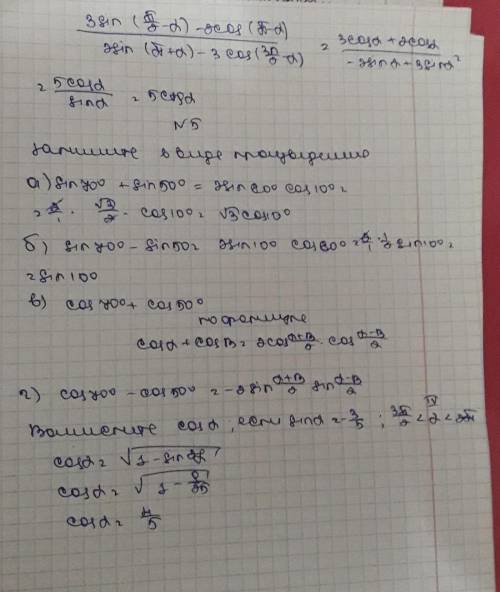 3sin (π/2 - α) - 2cos (π - α) / 2sin (π + α) - 3cos (3π/2 - α) = 3cosα + 2cosα / -2sinα + 3sinα =
= 5cosα / sinα = 5ctgα
N5
запишите в виде произведения
а) sin70° + sin50° = 2sin60° cos10° =
= 2/1 · √3/2 · cos10° = √3 cos10°
б) sin70° - sin50 = 2sin10° cos60° = 2/1 · 1/2 sin10° =
= sin10°
в) cos70° + cos50°
по формуле
cosα + cosβ = 2cos α+β/2 · cos α-β/2
г) cos70° - cos50° = -2sin α+β/2 sin α-β/2
Вычислите cosα, если sinα = -3/5 ; 3π/2 < α < 2π IV
cosα = √1 - sin²α
cosα = √1 - 9/25
cosα = 4/5